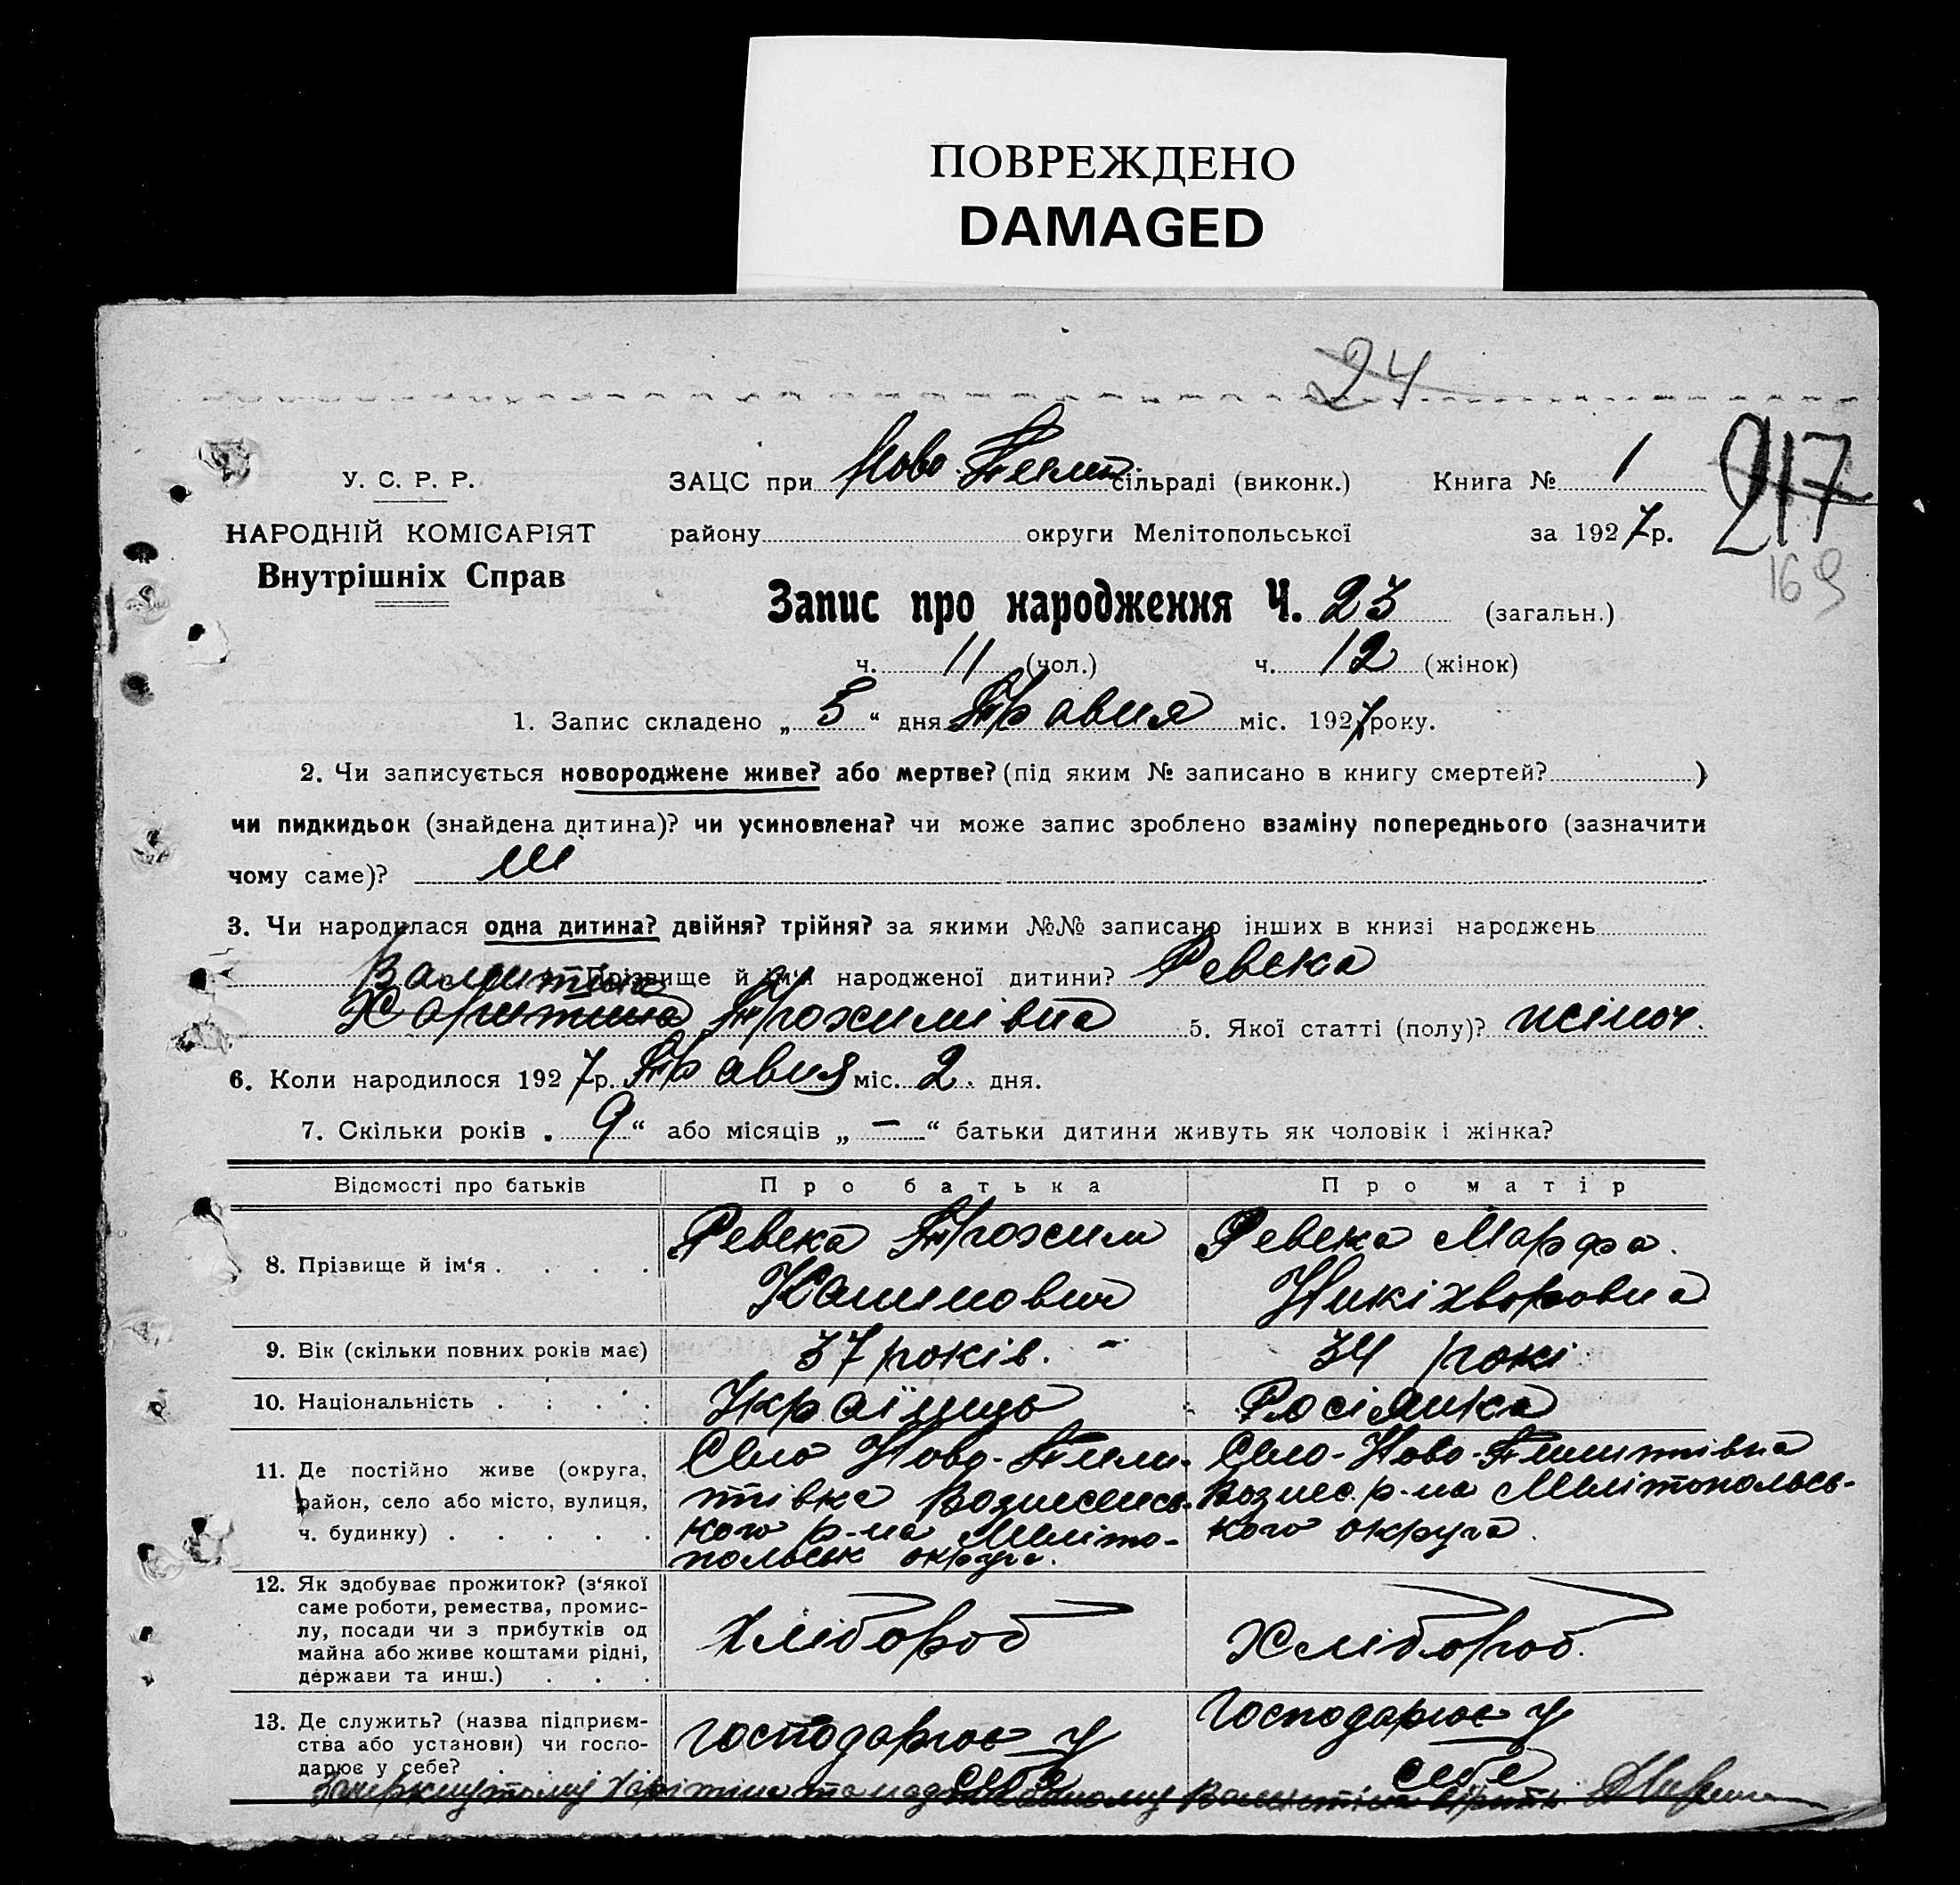 ПОВРЕЖДЕНО
DAMAGED
24
У. С. Р. Р.
ЗАЦС при Ново сільраді (виконк.) Книга № 1
217
НАРОДНІЙ КОМІСАРІЯТ
району округи Мелітопольської за 1927 р.
Внутрішніх Справ
169
Запис про народження Ч. 23 (загальн.)
ч. 11 (чол.) ч. 12 (жінок)
1. Запис складено „ 5 “ дня Травня міс. 1927 року.
2. Чи записується новороджене живе? або мертве? (під яким № записано в книгу смертей? )
чи пидкидьок (знайдена дитина)? чи усиновлена? чи може запис зроблено взаміну попереднього (зазначити
чому саме)?
3. Чи народилася одна дитина? двійня? трійня? за якими №№ записано інших в книзі народжень
Прізвище й ім‘я народженої дитини? Ревека
Харитина Трохимівна 5. Якої статті (полу)? жіноч.
6. Коли народилося 1927 р. Травня міс. 2 дня.
7. Скільки років „ 9 “ або місяців „ — “ батьки дитини живуть як чоловік і жінка?
Відомості про батьків Про батька Про матір
8. Прізвище й ім‘я . . . . Ревека Трохим Ревека Марфа
Нікіхворовна
9. Вік (скільки повних років має) 37 років. 34 рокі
10. Національність . . . . Українць Росіянка
11. Де постійно живе (округа, район, село або місто, вулиця, ч. будинку) . . . . .
Село Ново-
тівка Вознесенсь-
кого р-на Меліто-
польськ округа.
Село-Ново-
Вознес. р-на Мелітопольсь-
кого округа.
12. Як здобуває прожиток? (з‘якої
саме роботи, ремества, промис-
лу, посади чи з прибутків од
майна або живе коштами рідні,
держави та инш.) . . .
Хлібороб
Хлібороб.
13. Де служить? (назва підприєм-
ства або установи) чи госпо-
дарює у себе? . . . .
господарює у
себе
господарює у
себе
Закреслутому Харітіна та над